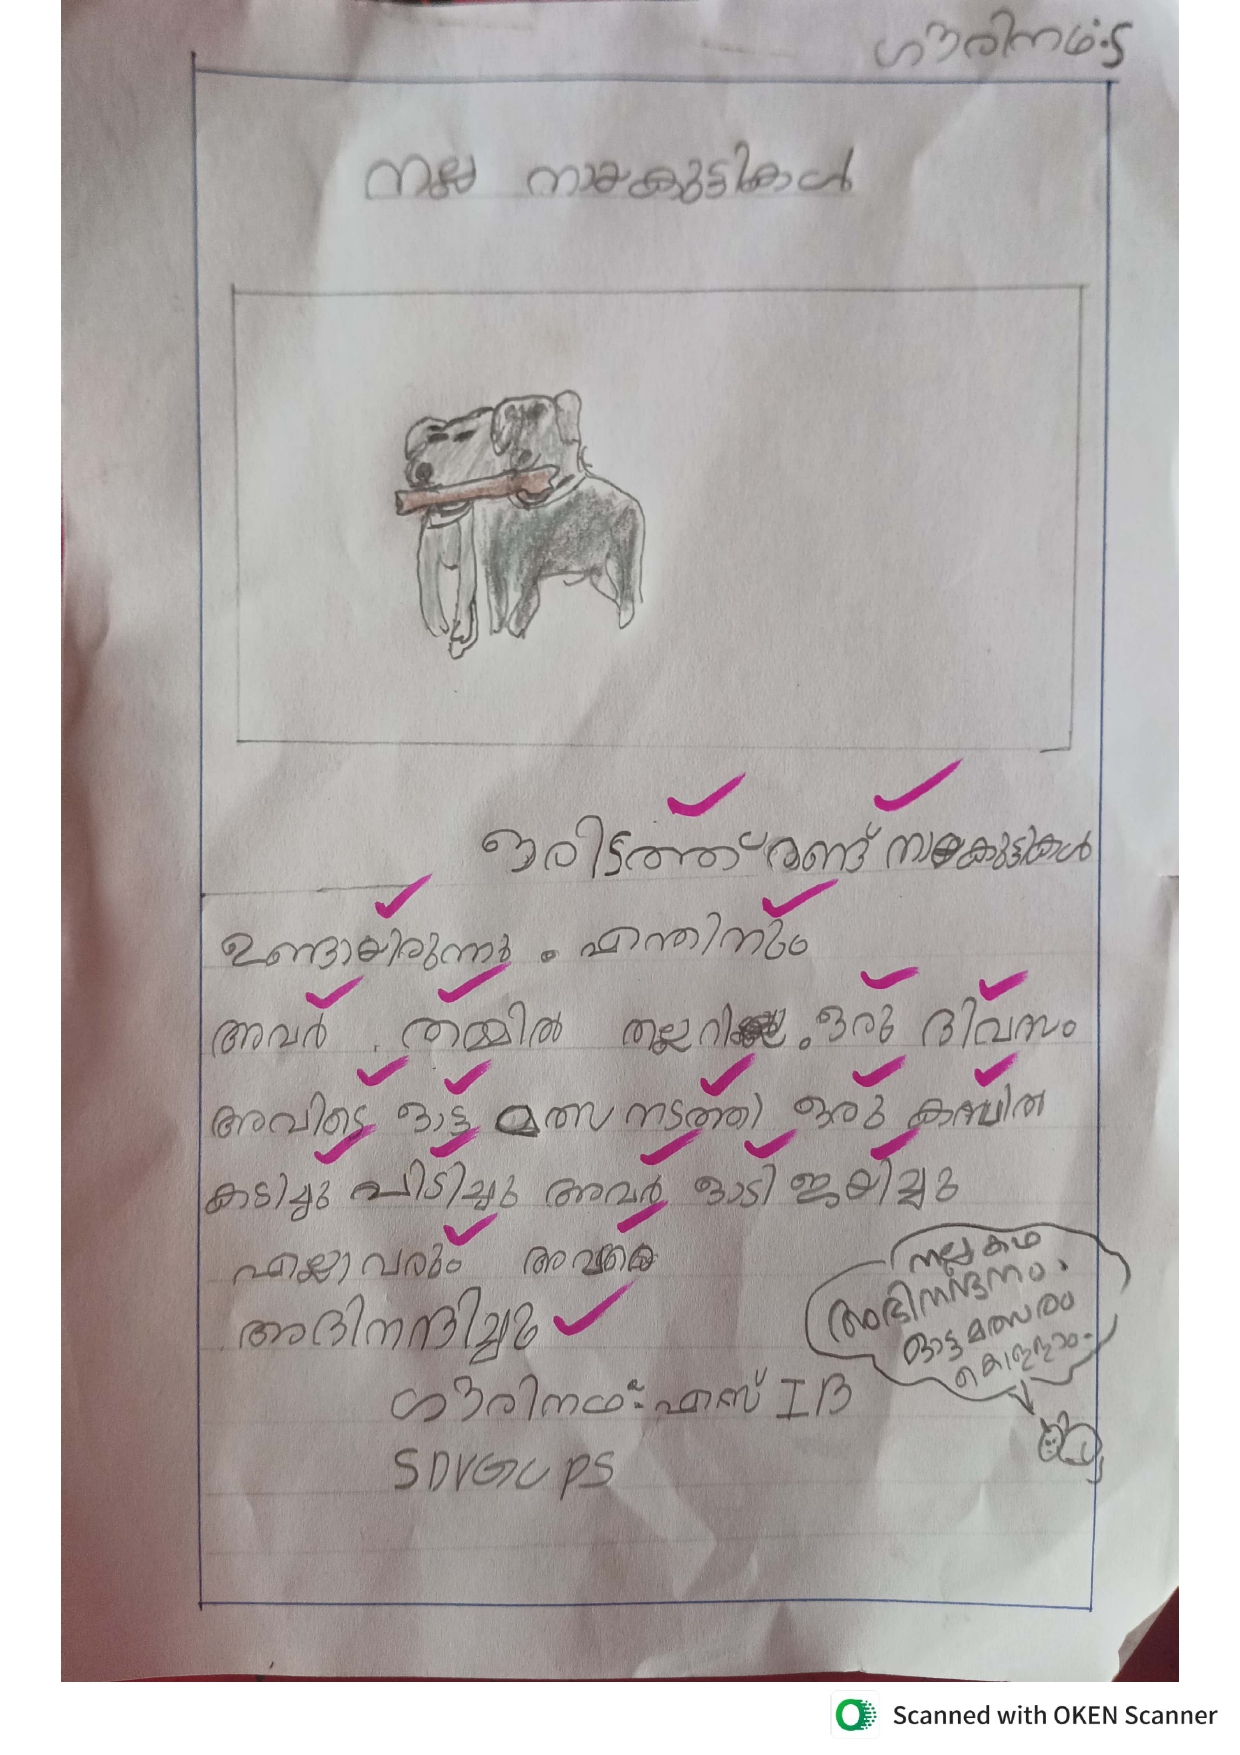 ഗൗരിനഥ്.S
നല്ല നായകുട്ടികൾ
ഒരിടത്ത് രണ്ട് നായകുട്ടികൾ
ഉണ്ടായിരുന്നു. എന്തിനും
അവർ തമ്മിൽ തല്ലറില്ല. ഒരു ദിവസം
അവിടെ ഓട്ട മത്സ നടത്തി ഒരു കമ്പിത
കടിച്ചു പിടിച്ചു അവർ ഓടി ജയിച്ചു
എല്ലാവരും അവരെ
അദിനന്ദിച്ചു
നല്ല കഥ
അഭിനന്ദനം.
ഓട്ട മത്സരം
കൊള്ളാം.
ഗൗരിനഥ് എസ് I B
SDVGUPS
Scanned with OKEN Scanner